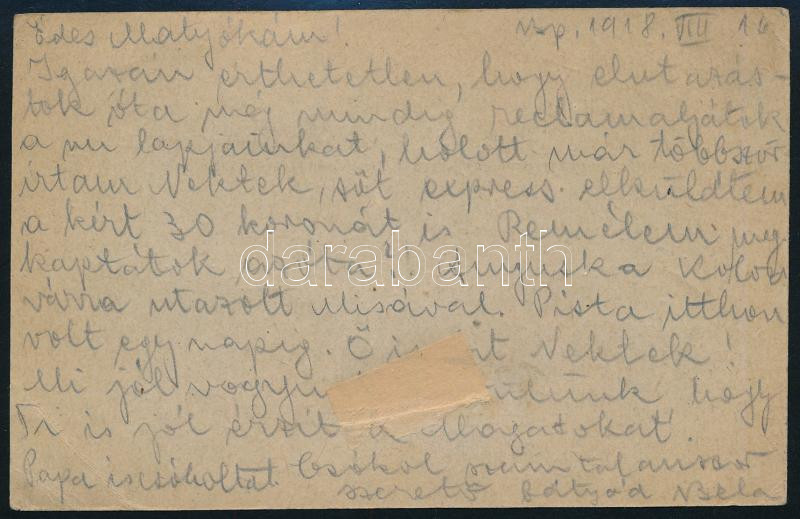 Édes Matyókám! Bp. 1918. VIII 16
Igazán érthetetlen, hogy elutazás-
tok óta még mindig reclamaljátok
a mi lapjainkat, holott már többször
írtam Nektek, sőt express elküldtem
a kért 30 koronát is. Remélem meg
kaptátok azóta?. Anyuska Kolozs
várra utazott Misával. Pista itthon
volt egy napig. Ő is Nektek!
Mi jól hogy
Ti is jól érzitek Magatokat.
Papa is csókoltat. Csókol számtalanszor
szerető bátyád Béla
darabanth